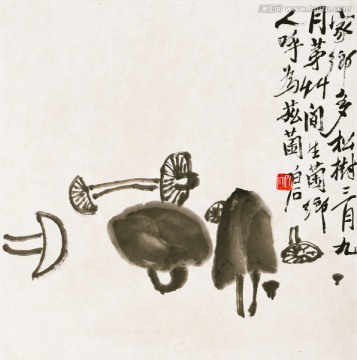 家鄉多松樹三月九
月茅草間生菌鄉
人呼為菌 白石